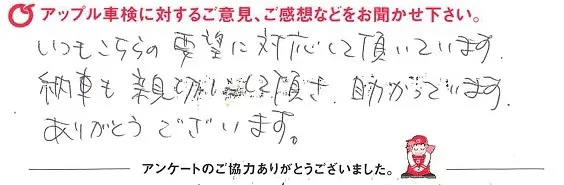 アップル車検に対するご意見、ご感想などをお聞かせ下さい。
いつもこちらの要望に対応して頂いています。
納車も親切にして頂き、助かっています。
ありがとうございます。
アンケートのご協力ありがとうございました。